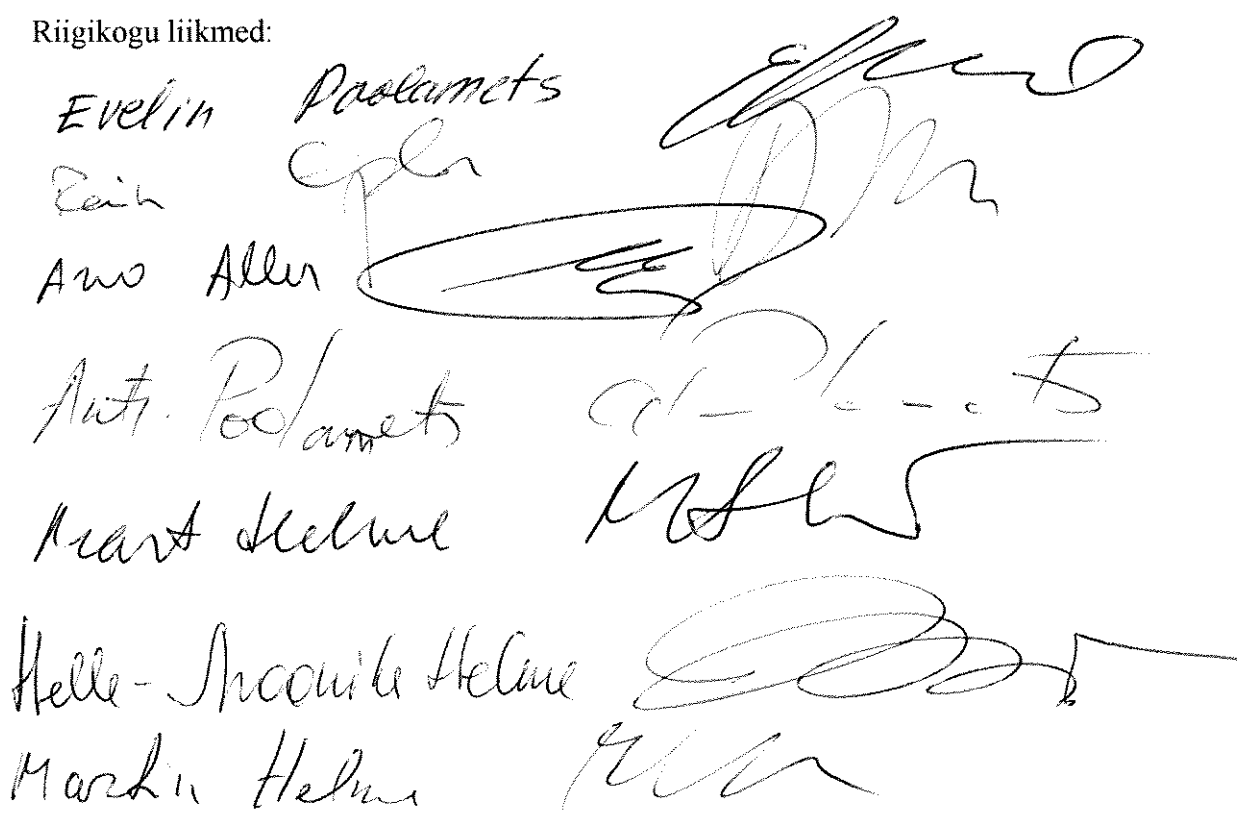 Riigikogu liikmed:
Evelin Poolamets
Rain Epler
Arvo Aller
Anti Poolamets
Mart Helme
Helle-Moonika Helme
Martin Helme